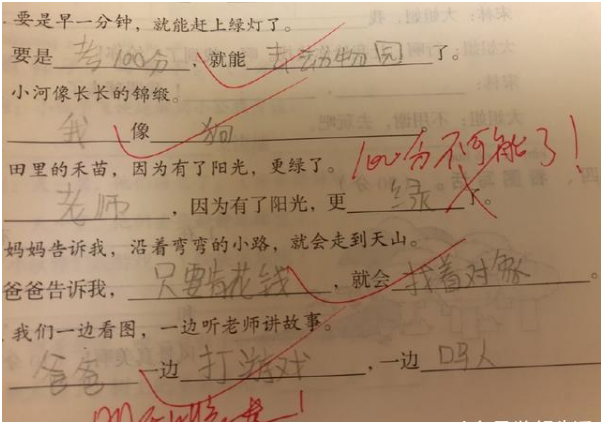 要是早一分钟，就能赶上绿灯了。
要是考100分，就能去动物园了。
小河像长长的锦缎。
我像狗
100分不可能了！
田里的禾苗，因为有了阳光，更绿了。
老师，因为有了阳光，更绿了。
妈妈告诉我，沿着弯弯的小路，就会走到天山。
爸爸告诉我，只要肯花钱，就会找着对象。
我们一边看图，一边听老师讲故事。
爸爸一边打游戏，一边骂人